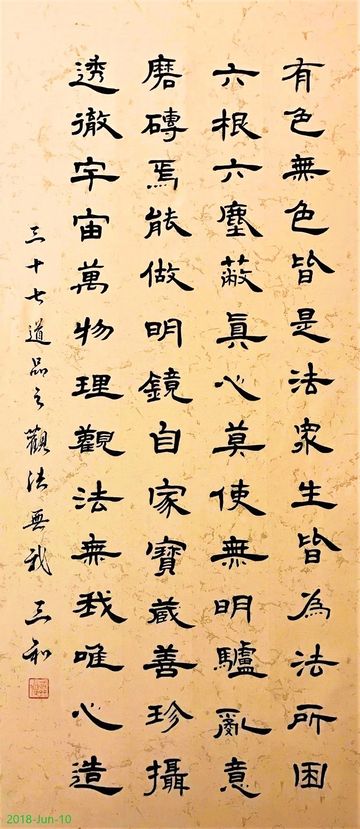 有色無色皆是法眾生皆為法所困
六根六塵蔽眞心莫使無明驢亂意
磨磚焉能做明鏡自家寶藏善珍攝
透徹宇宙萬物理觀法無我唯心造
三十七道品之觀法無我 三和
2018-Jun-10